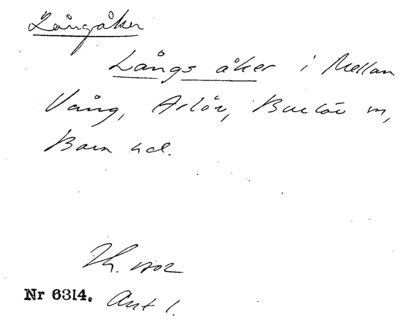 Långåker
Långs åker i Mellan
Vång, Arlöv, Burlöv sn,
Bara hd.
Nr 6314. Ant 1.